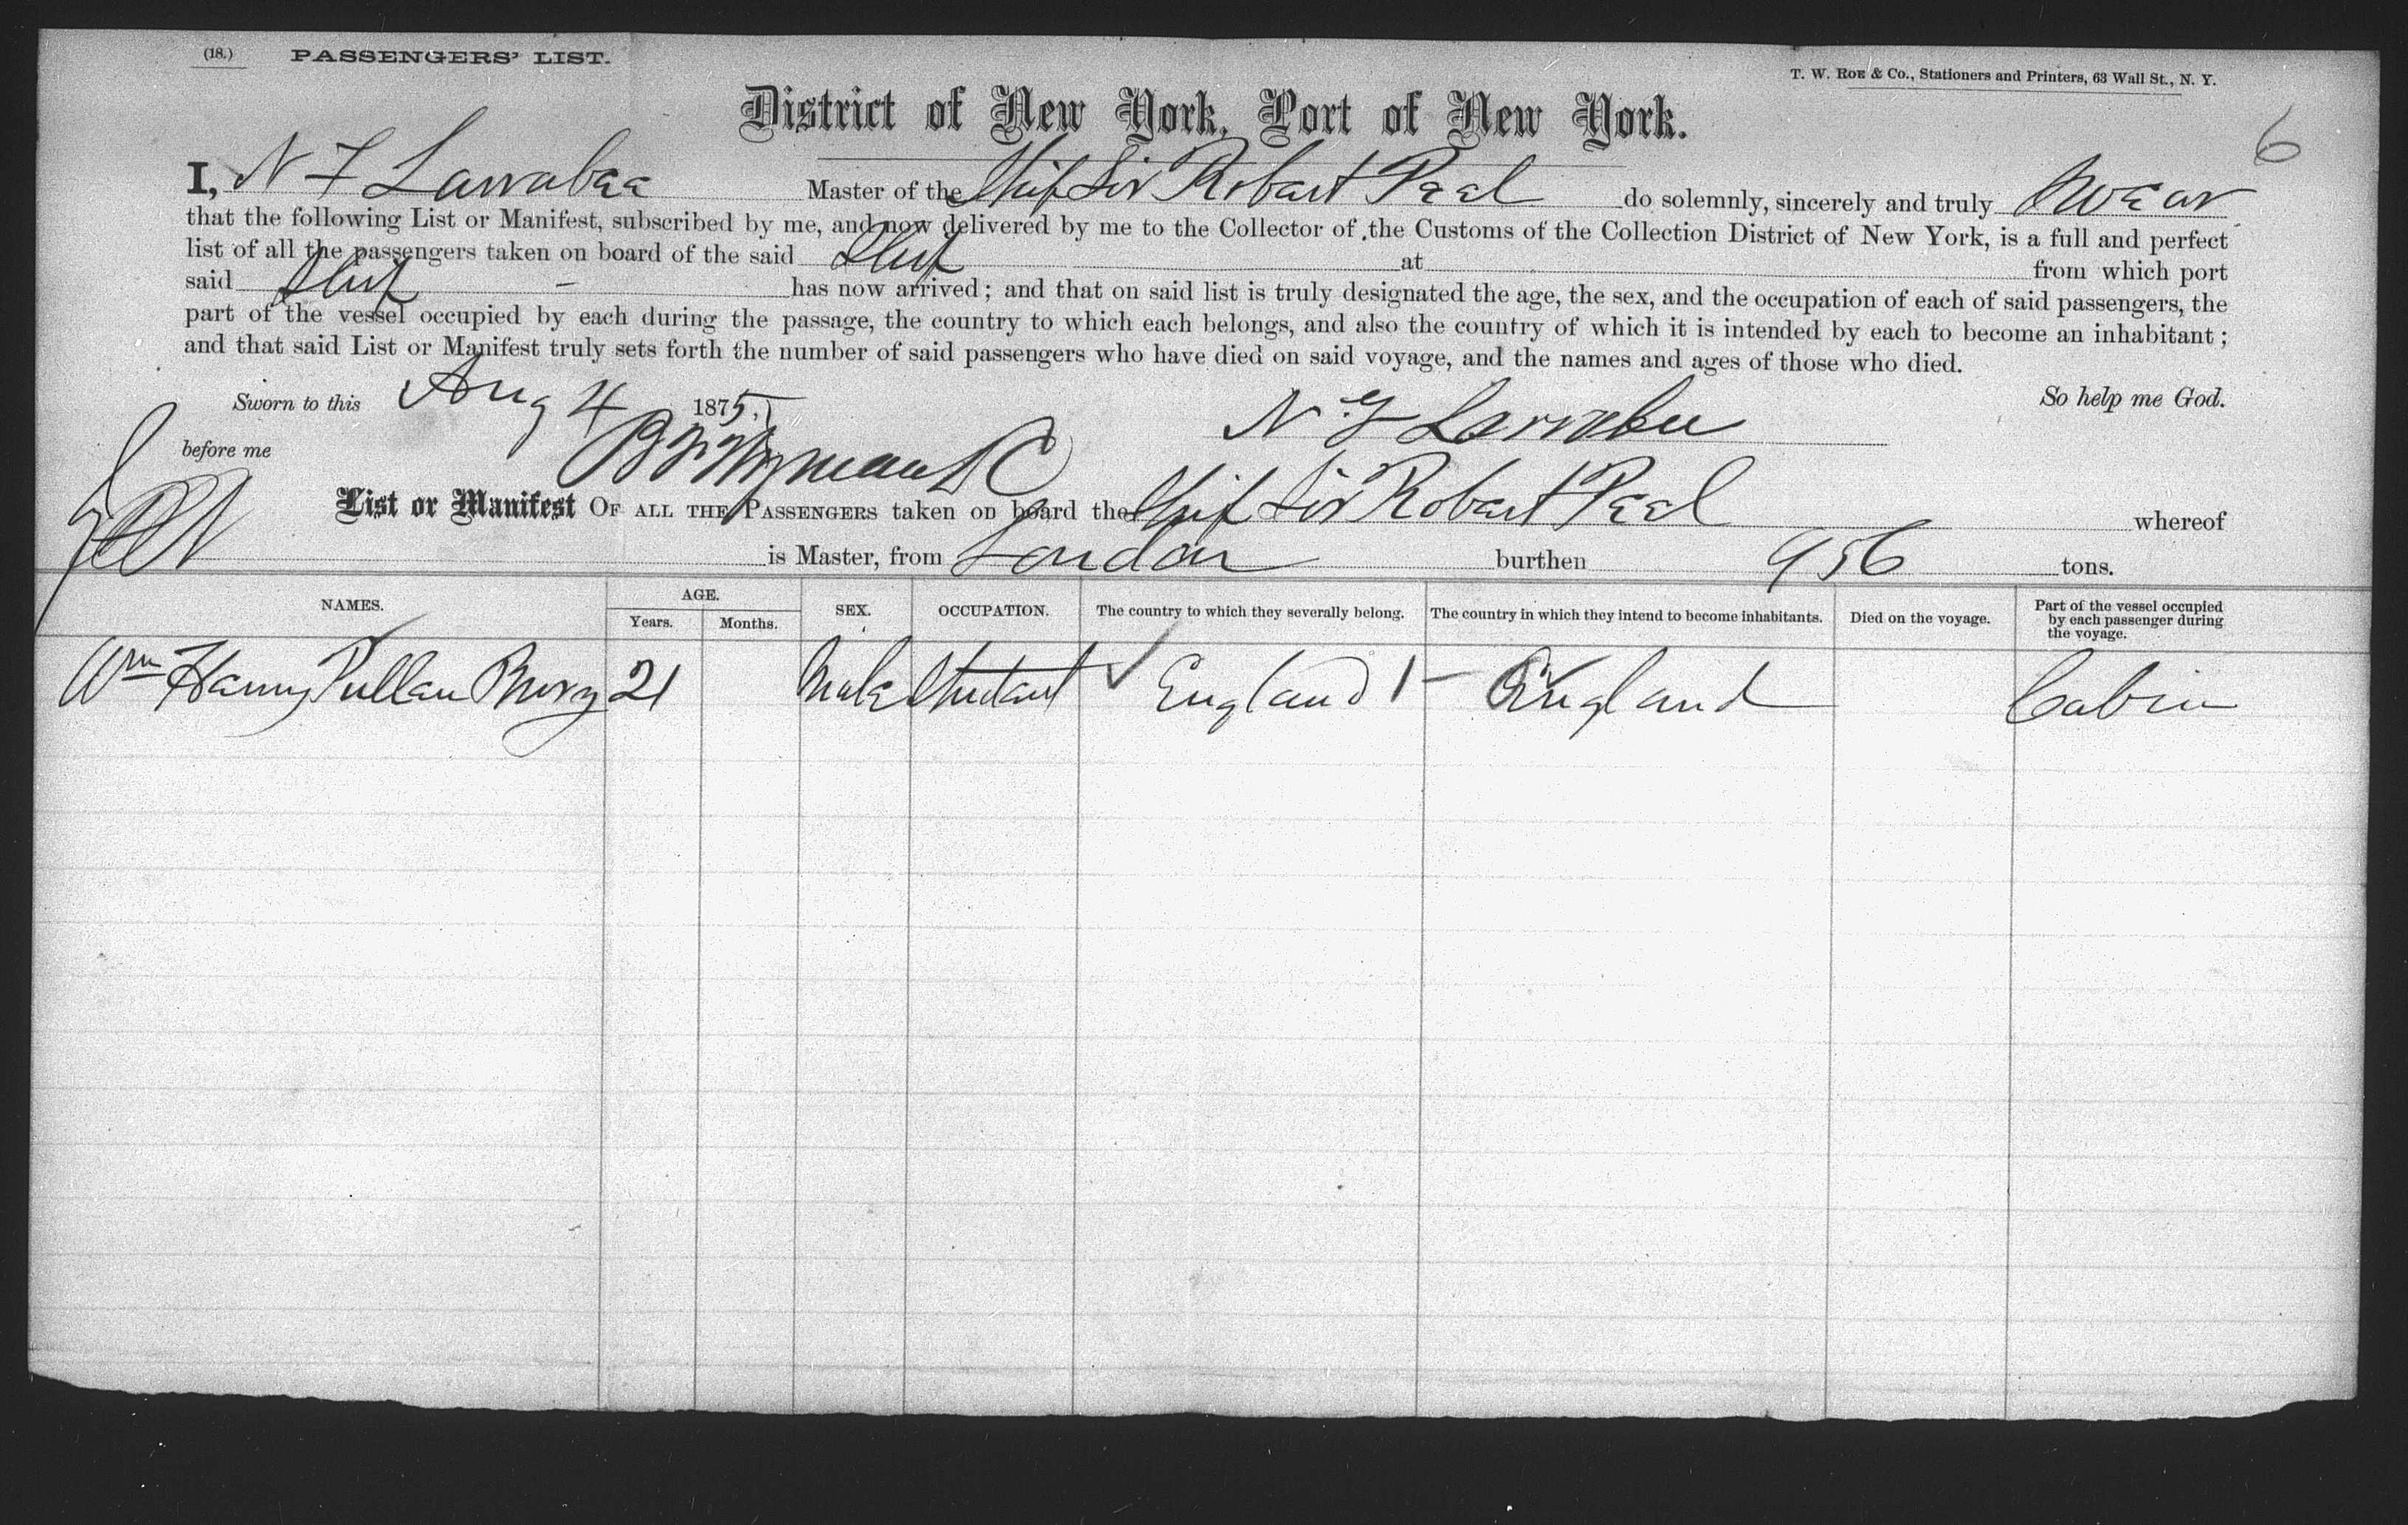 (18.) PASSENGERS' LIST.
T. W. ROE & Co., Stationers and Printers, 63 Wall St., N. Y.
District of New York, Port of New York.
6
I, N F Larrabee Master of the Ship Sir Robert Peel do solemnly, sincerely and truly Swear
that the following List or Manifest, subscribed by me, and now delivered by me to the Collector of the Customs of the Collection District of New York, is a full and perfect
list of all the passengers taken on board of the said Ship at from which port
said Ship - has now arrived; and that on said list is truly designated the age, the sex, and the occupation of each of said passengers, the
part of the vessel occupied by each during the passage, the country to which each belongs, and also the country of which it is intended by each to become an inhabitant;
and that said List or Manifest truly sets forth the number of said passengers who have died on said voyage, and the names and ages of those who died.
Sworn to this Aug 4 1875, So help me God.
before me N Larrabee
List or Manifest OF ALL THE PASSENGERS taken on board the Ship Sir Robert Peel whereof
is Master, from London burthen 956 tons.
NAMES. AGE. Years. Months. SEX. OCCUPATION. The country to which they severally belong. The country in which they intend to become inhabitants. Died on the voyage. Part of the vessel occupied by each passenger during the voyage.
Wm Henry Pullen Burry 21 Male Student England 1 England Cabin